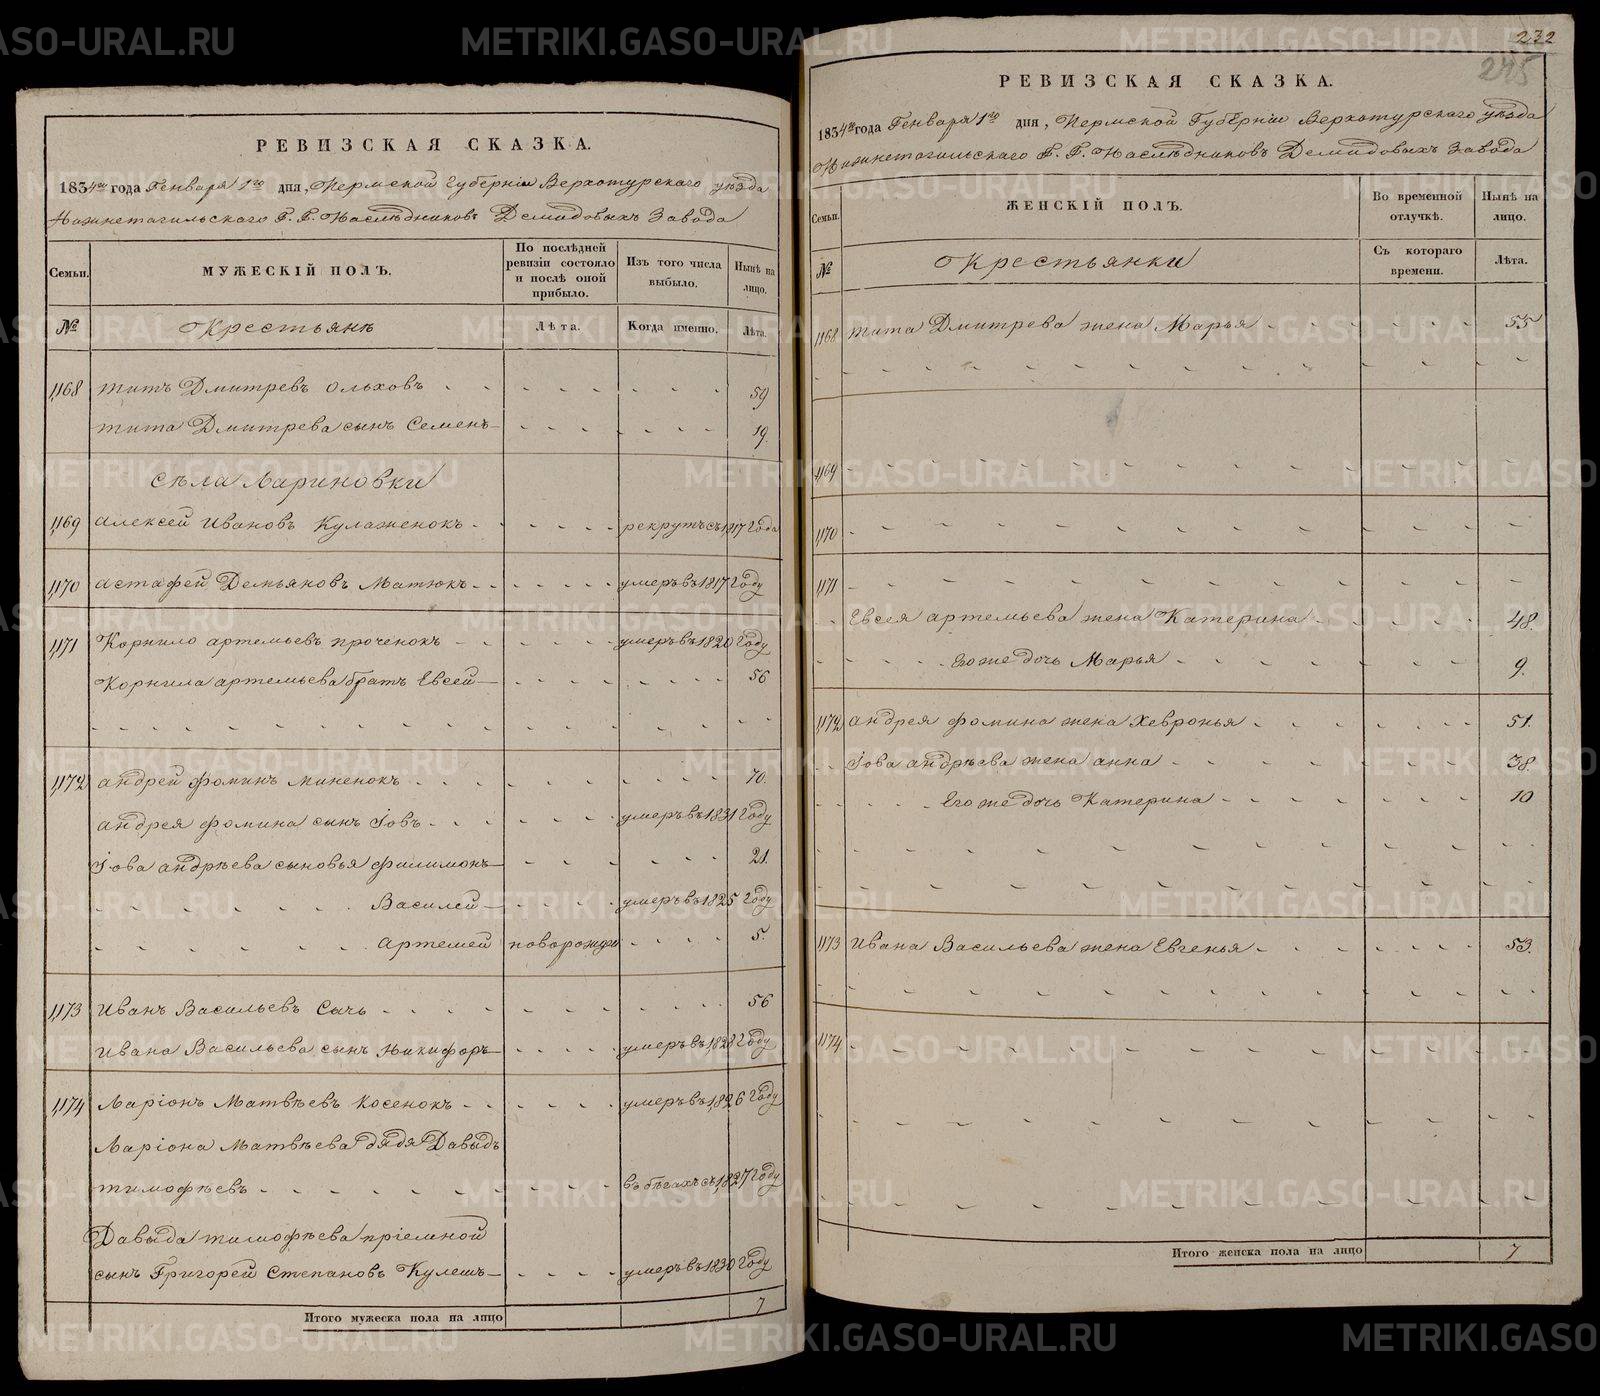 РЕВИЗСКАЯ СКАЗКА.
1834го года Генваря 1го дня, Пермской Губерніи Верхотурскаго уѣзда
Нижнетагильскаго Г. Г. Наслѣдниковъ Демидовыхъ Завода
Семьи. МУЖЕСКІЙ ПОЛЪ. По послѣдней ревизіи состояло и послѣ оной прибыло. Изъ того числа выбыло. Нынѣ на лицо.
№ Крестьянѣ Лѣта. Когда именно. Лѣта.
1168 Титъ Дмитревъ Ольховъ 59
Тита Дмитрева сынъ Семенъ 19.
Сѣла Лариновки
1169 Алексей Ивановъ Кулаженокъ рекрутъ съ 1817 Года
1170 Астафей Демьяновъ Матюкъ умеръ въ 1817 Году
1171 Корнило Артемьевъ Проченокъ умеръ въ 1820 Году
Корнила Артемьева братъ Евсей 56
1172 Андрей Фоминъ Миненокъ 70.
Андрея Фомина сынъ Іовъ умеръ въ 1831 Году
Іова Андрѣева сыновья Филимонъ 21.
Василей умеръ въ 1825 Году
Артемей новорожден 5.
1173 Иванъ Васильевъ Сычь 56
Ивана Васильева сынъ Никифоръ умеръ въ 1828 Году
1174 Ларіонъ Матвѣевъ Косенокъ умеръ въ 1826 Году
Ларіона Матвѣева дядя Давыдъ
Тимофѣевъ въ бѣгахъ съ 1827 Году
Давыда Тимофѣева пріемной
сынъ Григорей Степановъ Кулешъ умеръ въ 1830 Году
Итого мужеска пола на лицо 7
232
245
РЕВИЗСКАЯ СКАЗКА.
1834го года Генваря 1го дня, Пермской Губерніи Верхотурскаго уѣзда
Нижнетагильскаго Г. Г. Наслѣдниковъ Демидовыхъ Завода
Семьи. ЖЕНСКІЙ ПОЛЪ. Во временной отлучкѣ. Нынѣ на лицо.
№ Крестьянки Съ котораго времени. Лѣта.
1168 Тита Дмитрева жена Марья 55
1169
1170
1171
Евсея Артемьева жена Катерина 48.
Его же дочь Марья 9.
1172 Андрея Фомина жена Хевронья 51.
Іова Андрѣева жена Анна 38.
Его же дочь Катерина 10
1173 Ивана Васильева жена Евгенья 53.
1174
Итого женска пола на лицо 7
METRIKI.GASO-URAL.RU